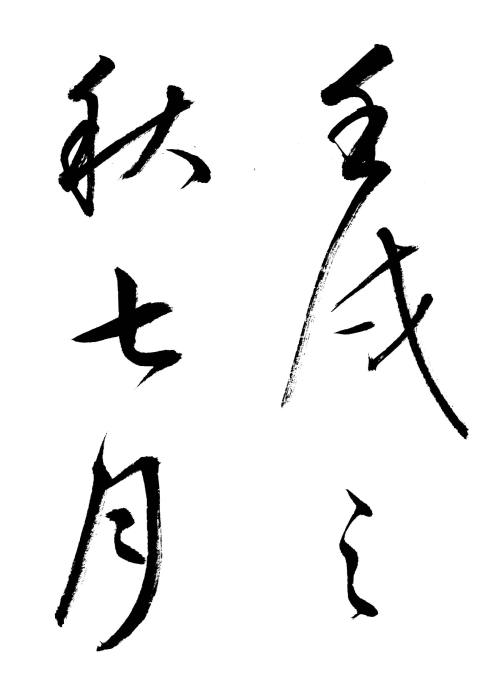 壬戌之
秋七月